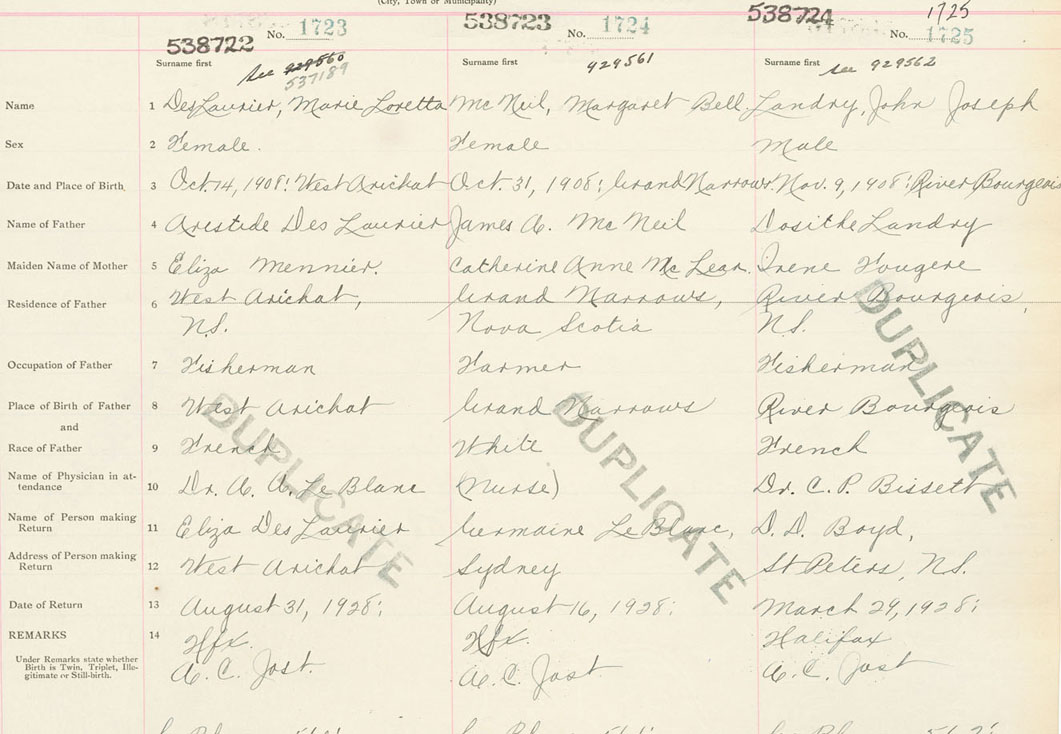 (City, Town or Municipality)
538722 No. 1723
538723 No. 1724
538724 No. 1725 1725
Surname first see 929560 537189
Surname first 929561
Surname first see 929562
Name 1 DesLaurier, Marie Loretta McNeil, Margaret Bell Landry, John Joseph
Sex 2 Female. Female Male
Date and Place of Birth 3 Oct. 14, 1908: West Arichat Oct. 31, 1908: Grand Narrows. Nov. 9, 1908: River Bourgeois
Name of Father 4 Aristide Des Laurier James A. McNeil Dosithe Landry
Maiden Name of Mother 5 Eliza Mennier. Catherine Anne McLean. Irene Fougere
Residence of Father 6 West Arichat, Grand Narrows, River Bourgeois,
N.S. Nova Scotia N.S.
Occupation of Father 7 Fisherman Farmer Fisherman
Place of Birth of Father 8 West Arichat Grand Narrows River Bourgeois
and
Race of Father 9 French White French
Name of Physician in attendance 10 Dr. A. A. Le Blanc (Nurse) Dr. C. P. Bissett
Name of Person making Return 11 Eliza Des Laurier Germaine Le Blanc, D. D. Boyd,
Address of Person making Return 12 West Arichat Sydney St Peters, N.S.
Date of Return 13 August 31, 1928: August 16, 1928: March 29, 1928:
REMARKS 14 Hfx. Hfx. Halifax
Under Remarks state whether Birth is Twin, Triplet, Illegitimate or Still-birth. A. C. Jost. A. C. Jost A. C. Jost
DUPLICATE
DUPLICATE
DUPLICATE